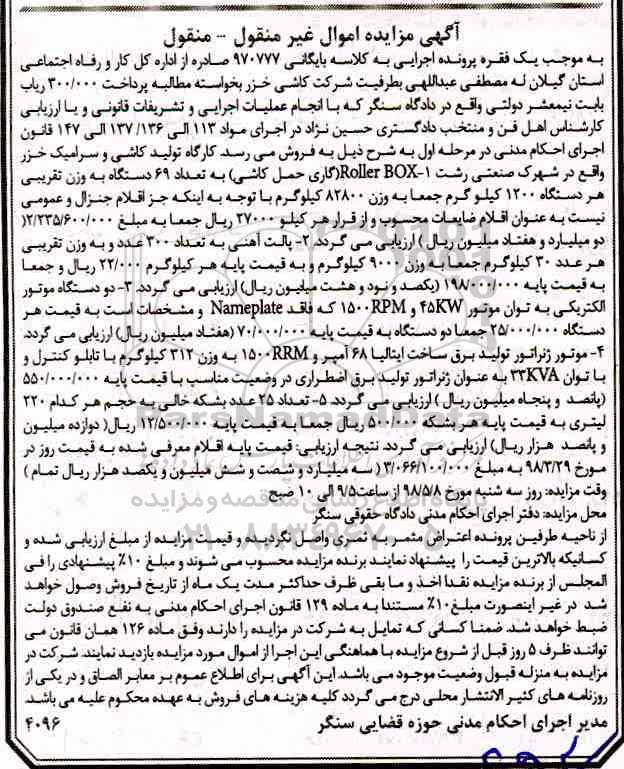 آگهی مزایده اموال غیر منقول -- منقول
به موجب یک فقره پرونده اجرایی به کلاسه بایگانی ۹۷۰۷۷۷ صادره از اداره کل کار و رفاه اجتماعی
استان گیلان له مصطفی عبداللهی بطرفیت شرکت کاشی خزر بخواسته مطالبه پرداخت ۳۰۰/۰۰۰ ریاب
بابت نیمعشر دولتی واقع در دادگاه سنگر که با انجام عملیات اجرایی و تشریفات قانونی و یا ارزیابی
کارشناس اهل فن و منتخب دادگستری حسین نژاد در اجرای مواد ۱۱۳ الی ۱۳۶/ ۱۳۷ الی ۱۴۷ قانون
اجرای احکام مدنی در مرحله اول به شرح ذیل به فروش می رسد. کارگاه تولید کاشی و سرامیک خزر
واقع در شهرک صنعتی رشت ۱-Roller BOX(گاری حمل کاشی) به تعداد ۶۹ دستگاه به وزن تقریبی
هر دستگاه ۱۲۰۰ کیلو گرم جمعا به وزن ۸۲۸۰۰ کیلوگرم با توجه به اینکه جز اقلام جنزال و عمومی
نیست به عنوان اقلام ضایعات محسوب و از قرار هر کیلو ۲۷۰۰۰ ریال جمعا به مبلغ ۲/۲۳۵/۶۰۰/۰۰۰(
دو میلیارد و هفتاد میلیون ریال ) ارزیابی می گردد. ۲- پالت آهنی به تعداد ۳۰۰ عدد و به وزن تقریبی
هر عدد ۳۰ کیلوگرم جمعا به وزن ۹۰۰۰ کیلوگرم و به قیمت پایه هر کیلوگرم ۲۲/۰۰۰ ریال و جمعا
به قیمت پایه ۱۹۸/۰۰۰/۰۰۰ (یکصد و نود و هشت میلیون ریال) ارزیابی می گردد. ۳- دو دستگاه موتور
الکتریکی به توان موتور ۴۵KW و ۱۵۰۰RPM که فاقد Nameplate و مشخصات است به قیمت هر
دستگاه ۲۵/۰۰۰/۰۰۰ جمعا دو دستگاه به قیمت پایه ۷۰/۰۰۰/۰۰۰ (هفتاد میلیون ریال) ارزیابی می گردد.
۴- موتور ژنراتور تولید برق ساخت ایتالیا ۶۸ آمپر و ۱۵۰۰RRM به وزن ۳۱۲ کیلوگرم با تابلو کنترل و
با توان ۳۳KVA به عنوان ژنراتور تولید برق اضطراری در وضعیت مناسب با قیمت پایه ۵۵۰/۰۰۰/۰۰۰
(پانصد و پنجاه میلیون ریال ) ارزیابی می گردد. ۵- تعداد ۲۵ عدد بشکه خالی به حجم هر کدام ۲۲۰
لیتری به قیمت پایه هر بشکه ۵۰۰/۰۰۰ ریال جمعا به قیمت پایه ۱۲/۵۰۰/۰۰۰ ریال( دوازده میلیون
و پانصد هزار ریال) ارزیابی می گردد. نتیجه ارزیابی: قیمت پایه اقلام معرفی شده به قیمت روز در
مورخ ۹۸/۳/۲۹ به مبلغ ۳/۰۶۶/۱۰۰/۰۰۰ ( سه میلیارد و شصت و شش میلیون و یکصد هزار ریال تمام )
وقت مزایده: روز سه شنبه مورخ ۹۸/۵/۸ از ساعت۹/۵ الی ۱۰ صبح
محل مزایده: دفتر اجرای احکام مدنی دادگاه حقوقی سنگر
از ناحیه طرفین پرونده اعتراض مثمر به ثمری واصل نگردیده و قیمت مزایده از مبلغ ارزیابی شده و
کسانیکه بالاترین قیمت را پیشنهاد نمایند برنده مزایده محسوب می شوند و مبلغ ۱۰٪ پیشنهادی را فی
المجلس از برنده مزایده نقدا اخذ و ما بقی ظرف حداکثر مدت یک ماه از تاریخ فروش وصول خواهد
شد در غیر اینصورت مبلغ ۱۰٪ مستندا به ماده ۱۲۹ قانون اجرای احکام مدنی به نفع صندوق دولت
ضبط خواهد شد. ضمنا کسانی که تمایل به شرکت در مزایده را دارند وفق ماده ۱۲۶ همان قانون می
توانند ظرف ۵ روز قبل از شروع مزایده با هماهنگی این اجرا از اموال مورد مزایده بازدید نمایند. شرکت در
مزایده به منزله قبول وضعیت موجود می باشد. این آگهی برای اطلاع عموم بر معابر الصاق و در یکی از
روزنامه های کثیر الانتشار محلی درج می گردد کلیه هزینه های فروش به عهده محکوم علیه می باشد.
مدیر اجرای احکام مدنی حوزه قضایی سنگر
۴۰۹۶